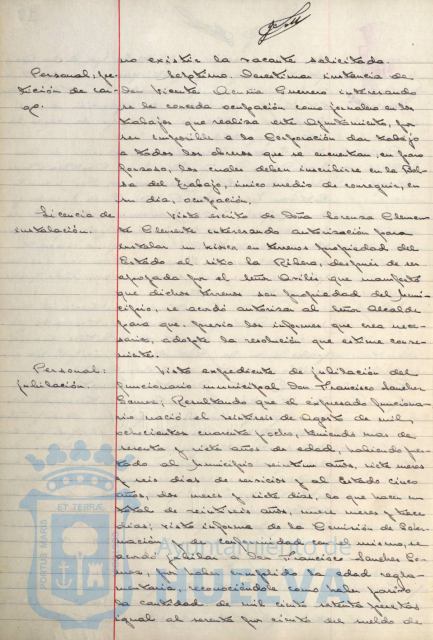 no existir la vacante solicitada.
Personal, petición de cargo.
Séptimo. Desestimar instancia de
Don Vicente Acuña Guerrero interesando
se le conceda ocupación como jornalero en los
trabajos que realiza este Ayuntamiento, por
ser imposible a la Corporación dar trabajo
a todos los obreros que se encuentran, en paro
forzoso, los cuales deben inscribirse en la Bol-
sa del Trabajo, único medio de conseguir, en
su día, ocupación.
Licencia de
instalación.
Visto escrito de Doña Lorenza Clemen-
te Clemente interesando autorización para
instalar un kiosco en terrenos propiedad del
Estado al sitio la Ribera, después de ser
apoyada por el señor que manifestó
que dichos terrenos son propiedad del Muni-
cipio, se acordó autorizar al Señor Alcalde
para que, previo los informes que crea nece-
sario, adopte la resolución que estime conve-
niente.
Personal:
jubilación.
Visto expediente de jubilación del
funcionario municipal Don Francisco Sanchez
Gomez; Resultando que el expresado funciona-
rio nació el veintiseis de Agosto de mil
ochocientos cuarenta y ocho, teniendo mas de
y siete años de edad, habiendo pres-
tado al Municipio veintiun años, siete meses
y seis dias de servicios y al Estado cinco
años, dos meses y siete dias, lo que hacen un
total de veintiseis años, nueve meses y trece
dias; visto informe de la Comisión de Gober-
nación y de conformidad con el mismo, se
acordó jubilar a Don Francisco Sanchez Go-
mez, por haber cumplido la edad regla-
mentaria, reconociéndole como haber pasivo
la cantidad de mil ciento setenta pesetas
igual al sesenta por ciento del sueldo de
PORTUS MARIS ET TERRAE
Ayuntamiento de
HUELVA